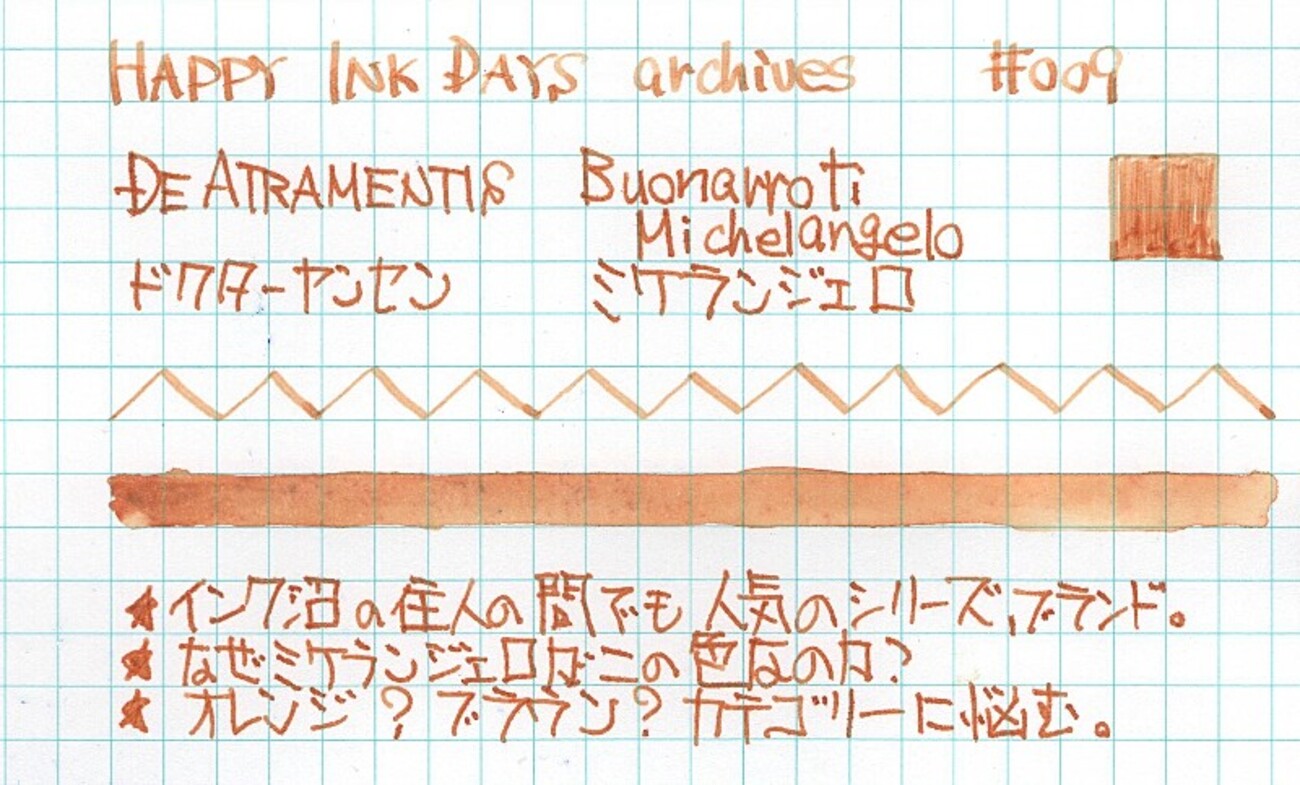 HAPPY INK DAYS archives #009
DE ATRAMENTIS Buonarroti
Michelangelo
ドクターヤンセン ミケランジェロ
★インク沼の住人の間でも人気のシリーズ,ブランド。
★なぜミケランジェロがこの色なのか?
★オレンジ?ブラウン?カテゴリーに悩む。